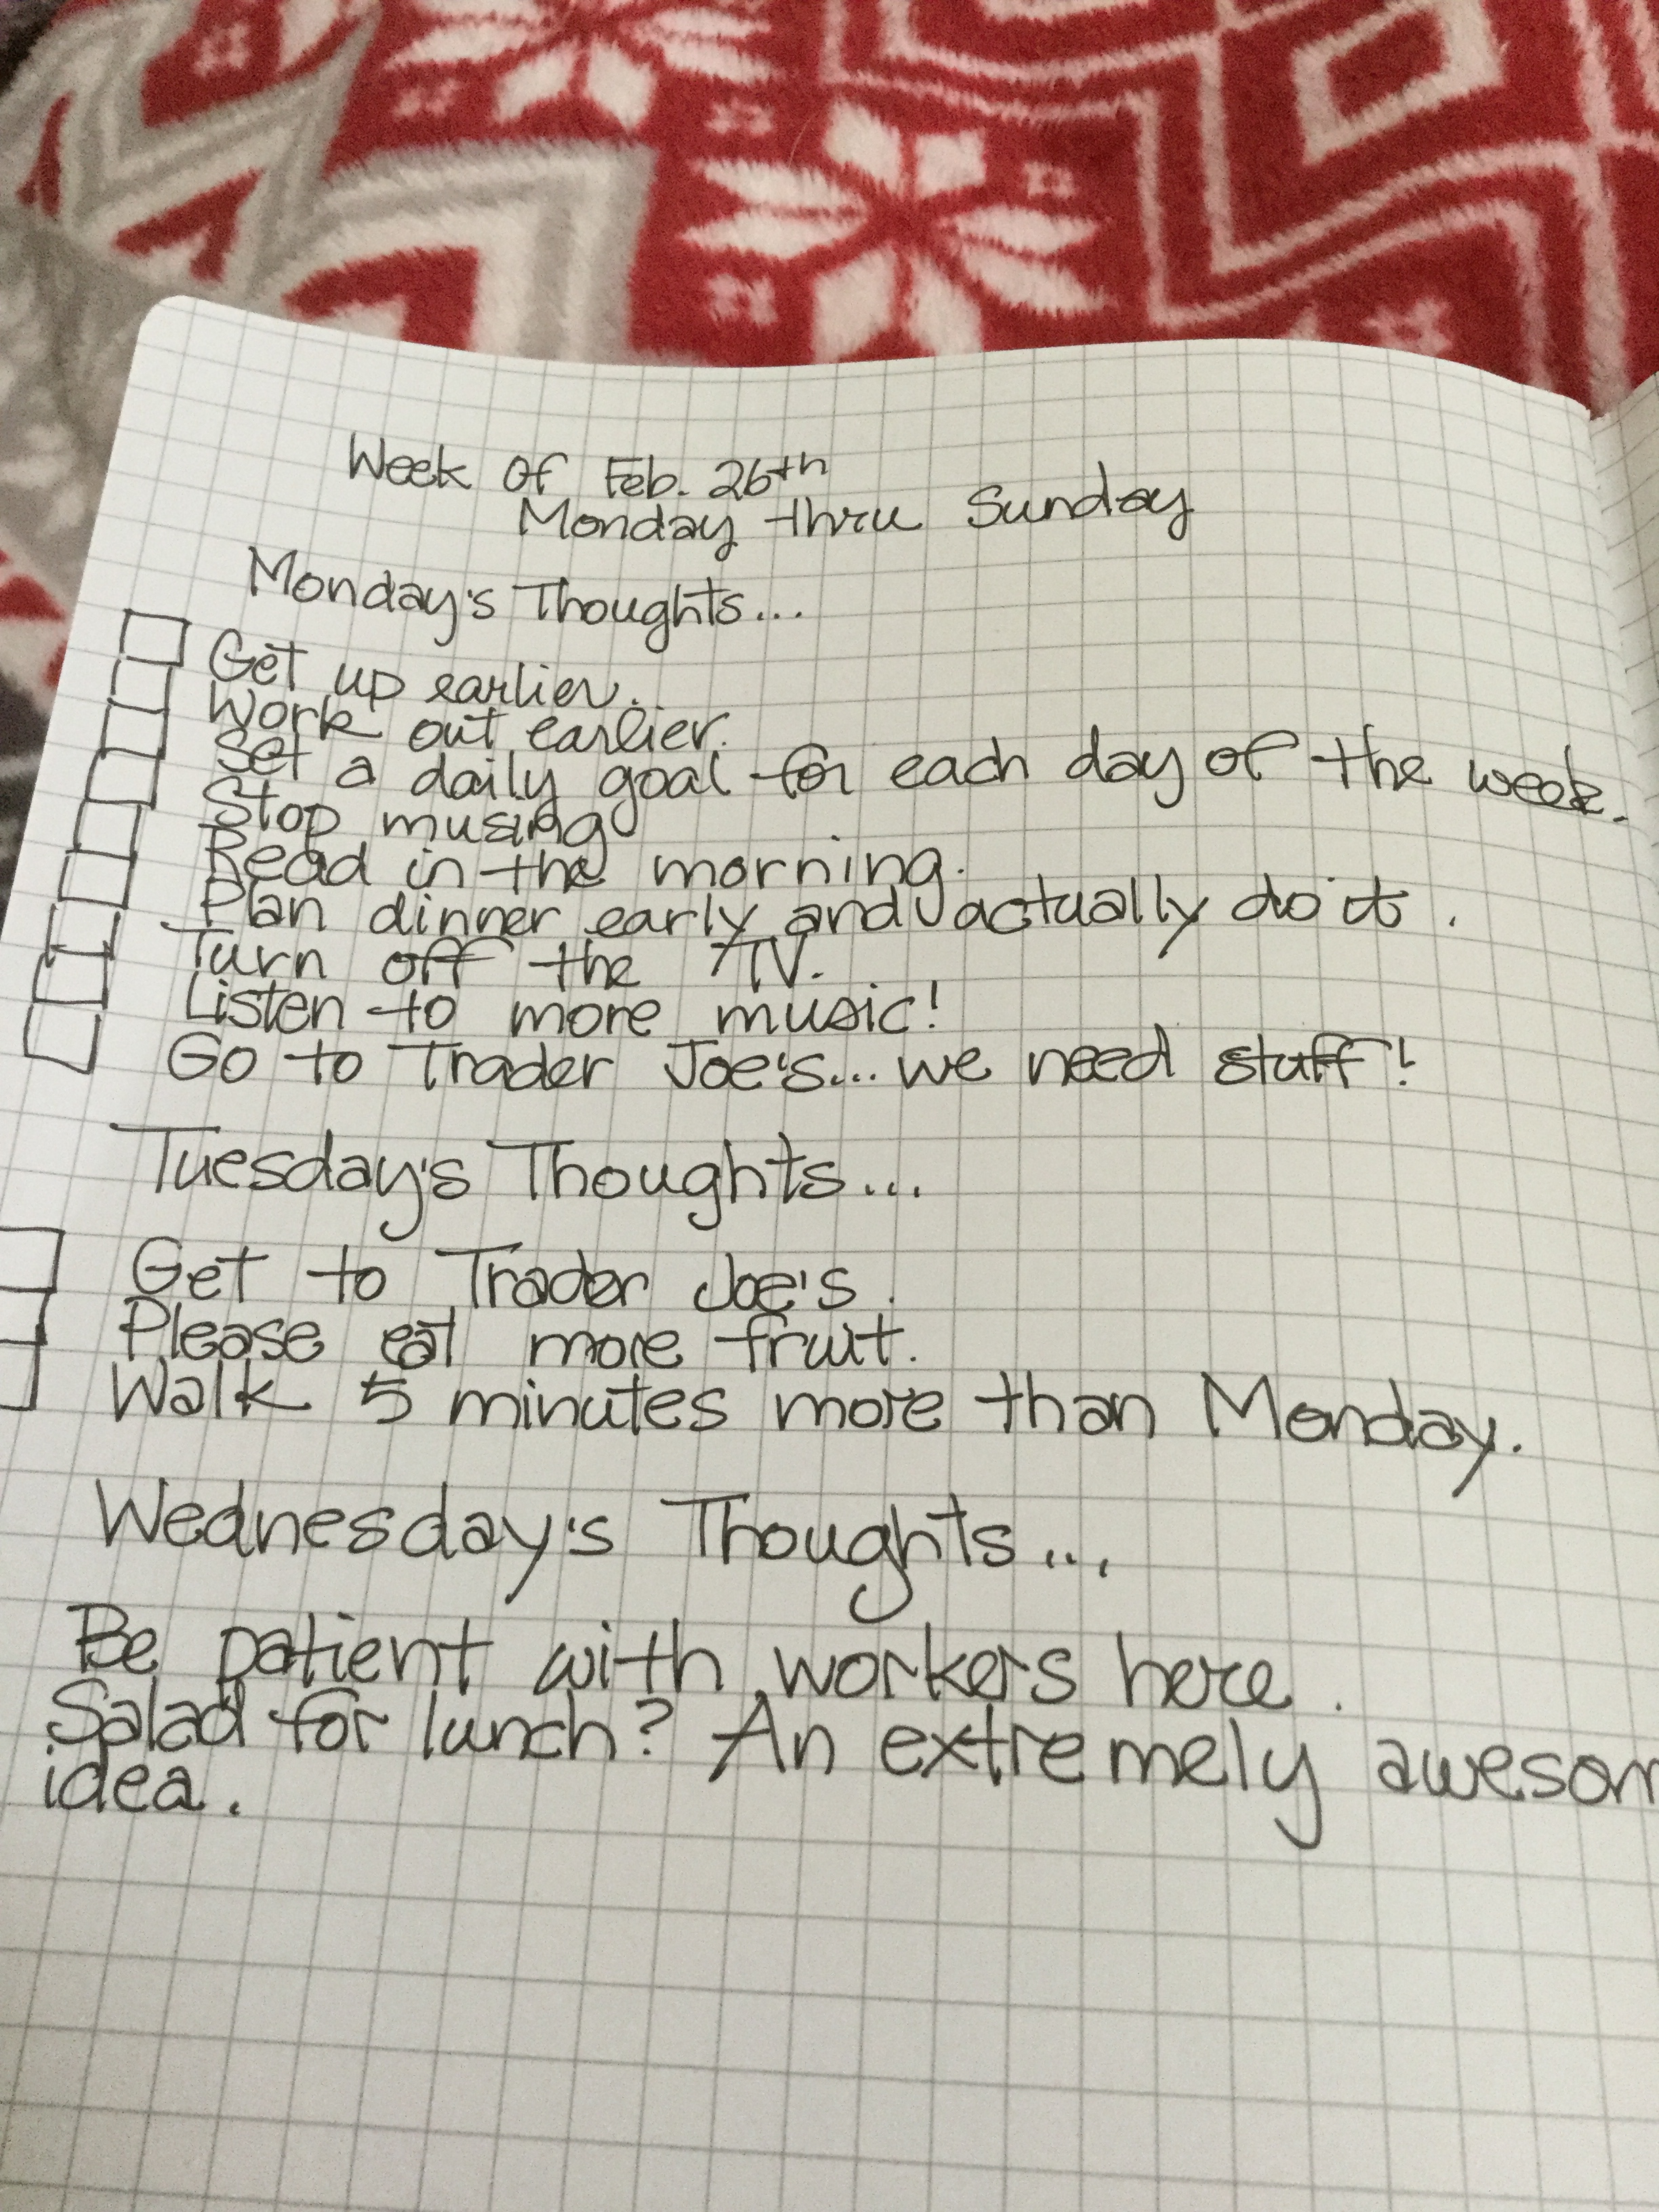 Week of Feb. 26th
Monday thru Sunday
Monday's Thoughts...
Get up earlier.
Work out earlier.
Set a daily goal for each day of the week.
Stop musing
Read in the morning.
Plan dinner early and actually do it.
Turn off the TV.
Listen to more music!
Go to Trader Joe's... we need stuff!
Tuesday's Thoughts...
Get to Trader Joe's.
Please eat more fruit.
Walk 5 minutes more than Monday.
Wednesday's Thoughts...
Be patient with workers here.
Salad for lunch? An extremely awesom
idea.